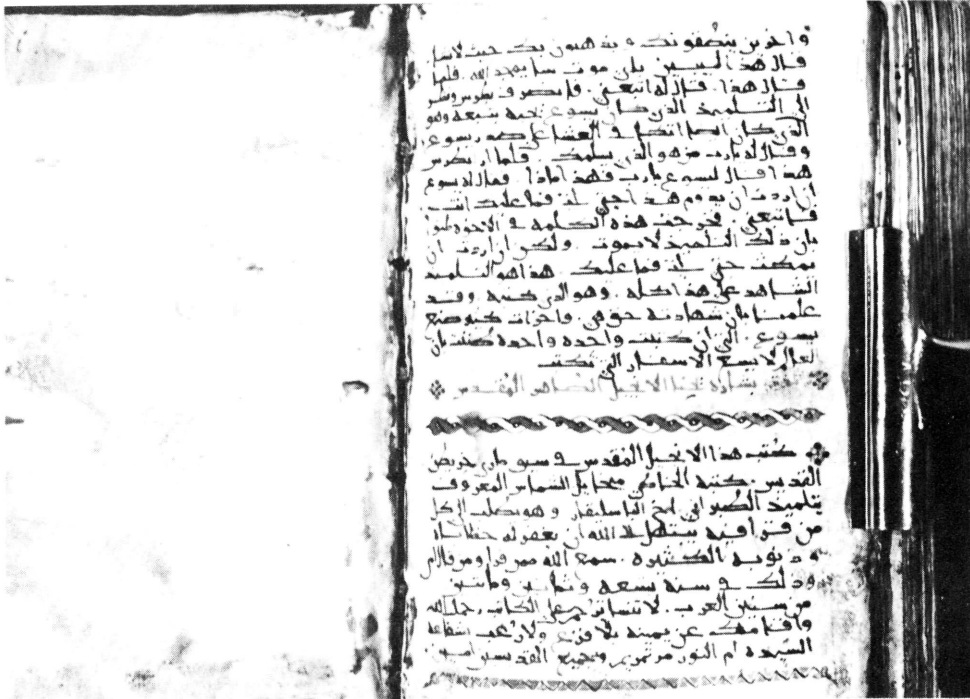 واخرين ينطقونك ويذهبون بك حيث لاتشا
قال هذا ليبين باي موت سا يمجد الله . فلما
قال هذا . قال له اتبعني . فانصرف بطرس ونظر
الى التلميذ الذي كان يسوع يحبه يتبعه وهو
الذي كان ايضا اتكا في العشا على صدر يسوع
وقال له يارب من هو الذي يسلمك . فلما بطرس
هذا قال ليسوع يارب فهذا ماذا . فقال له يسوع
ان اردت ان يدوم هذا اجي فما عليك انت
فاتبعني . فخرجت هذه الكلمه في الاخوه
بان ذلك التلميذ لا يموت . ولكن ان اردت ان
يمكث حتى فما عليك . هذا هو التلميذ
الشاهد على هذا كله . وهو الذي كتبه . وقد
علمنا بان شهادته حق هي . واخرات صنع
يسوع . التي ان كتبت واحده واحده ظننت بان
العالم لا يسع الاسفار التي تكتب
بشاره يحنا الانجيل الطاهر المقدس
كتب هذا الانجيل المقدس في سيق ماري حريطن
القدس . كتبه الخاطي ميخايل الشماس المعروف
بتلميذ وهو يطلب الى كل
من قرا فيه يبتهل الى الله ان يغفر له خطاياه
وذنوبه الكثيره . سمع الله ممن قرا ومن قال امين
وذلك في سنه تسعه وثمانين وماتين
من سنين العرب . لا تنسا ترحم على الكاتب رحمك الله
واقامك عن يمينه بلا فزع ولا رعب بشفاعه
السيده ام النور مرتمريم وجميع القديسين امين